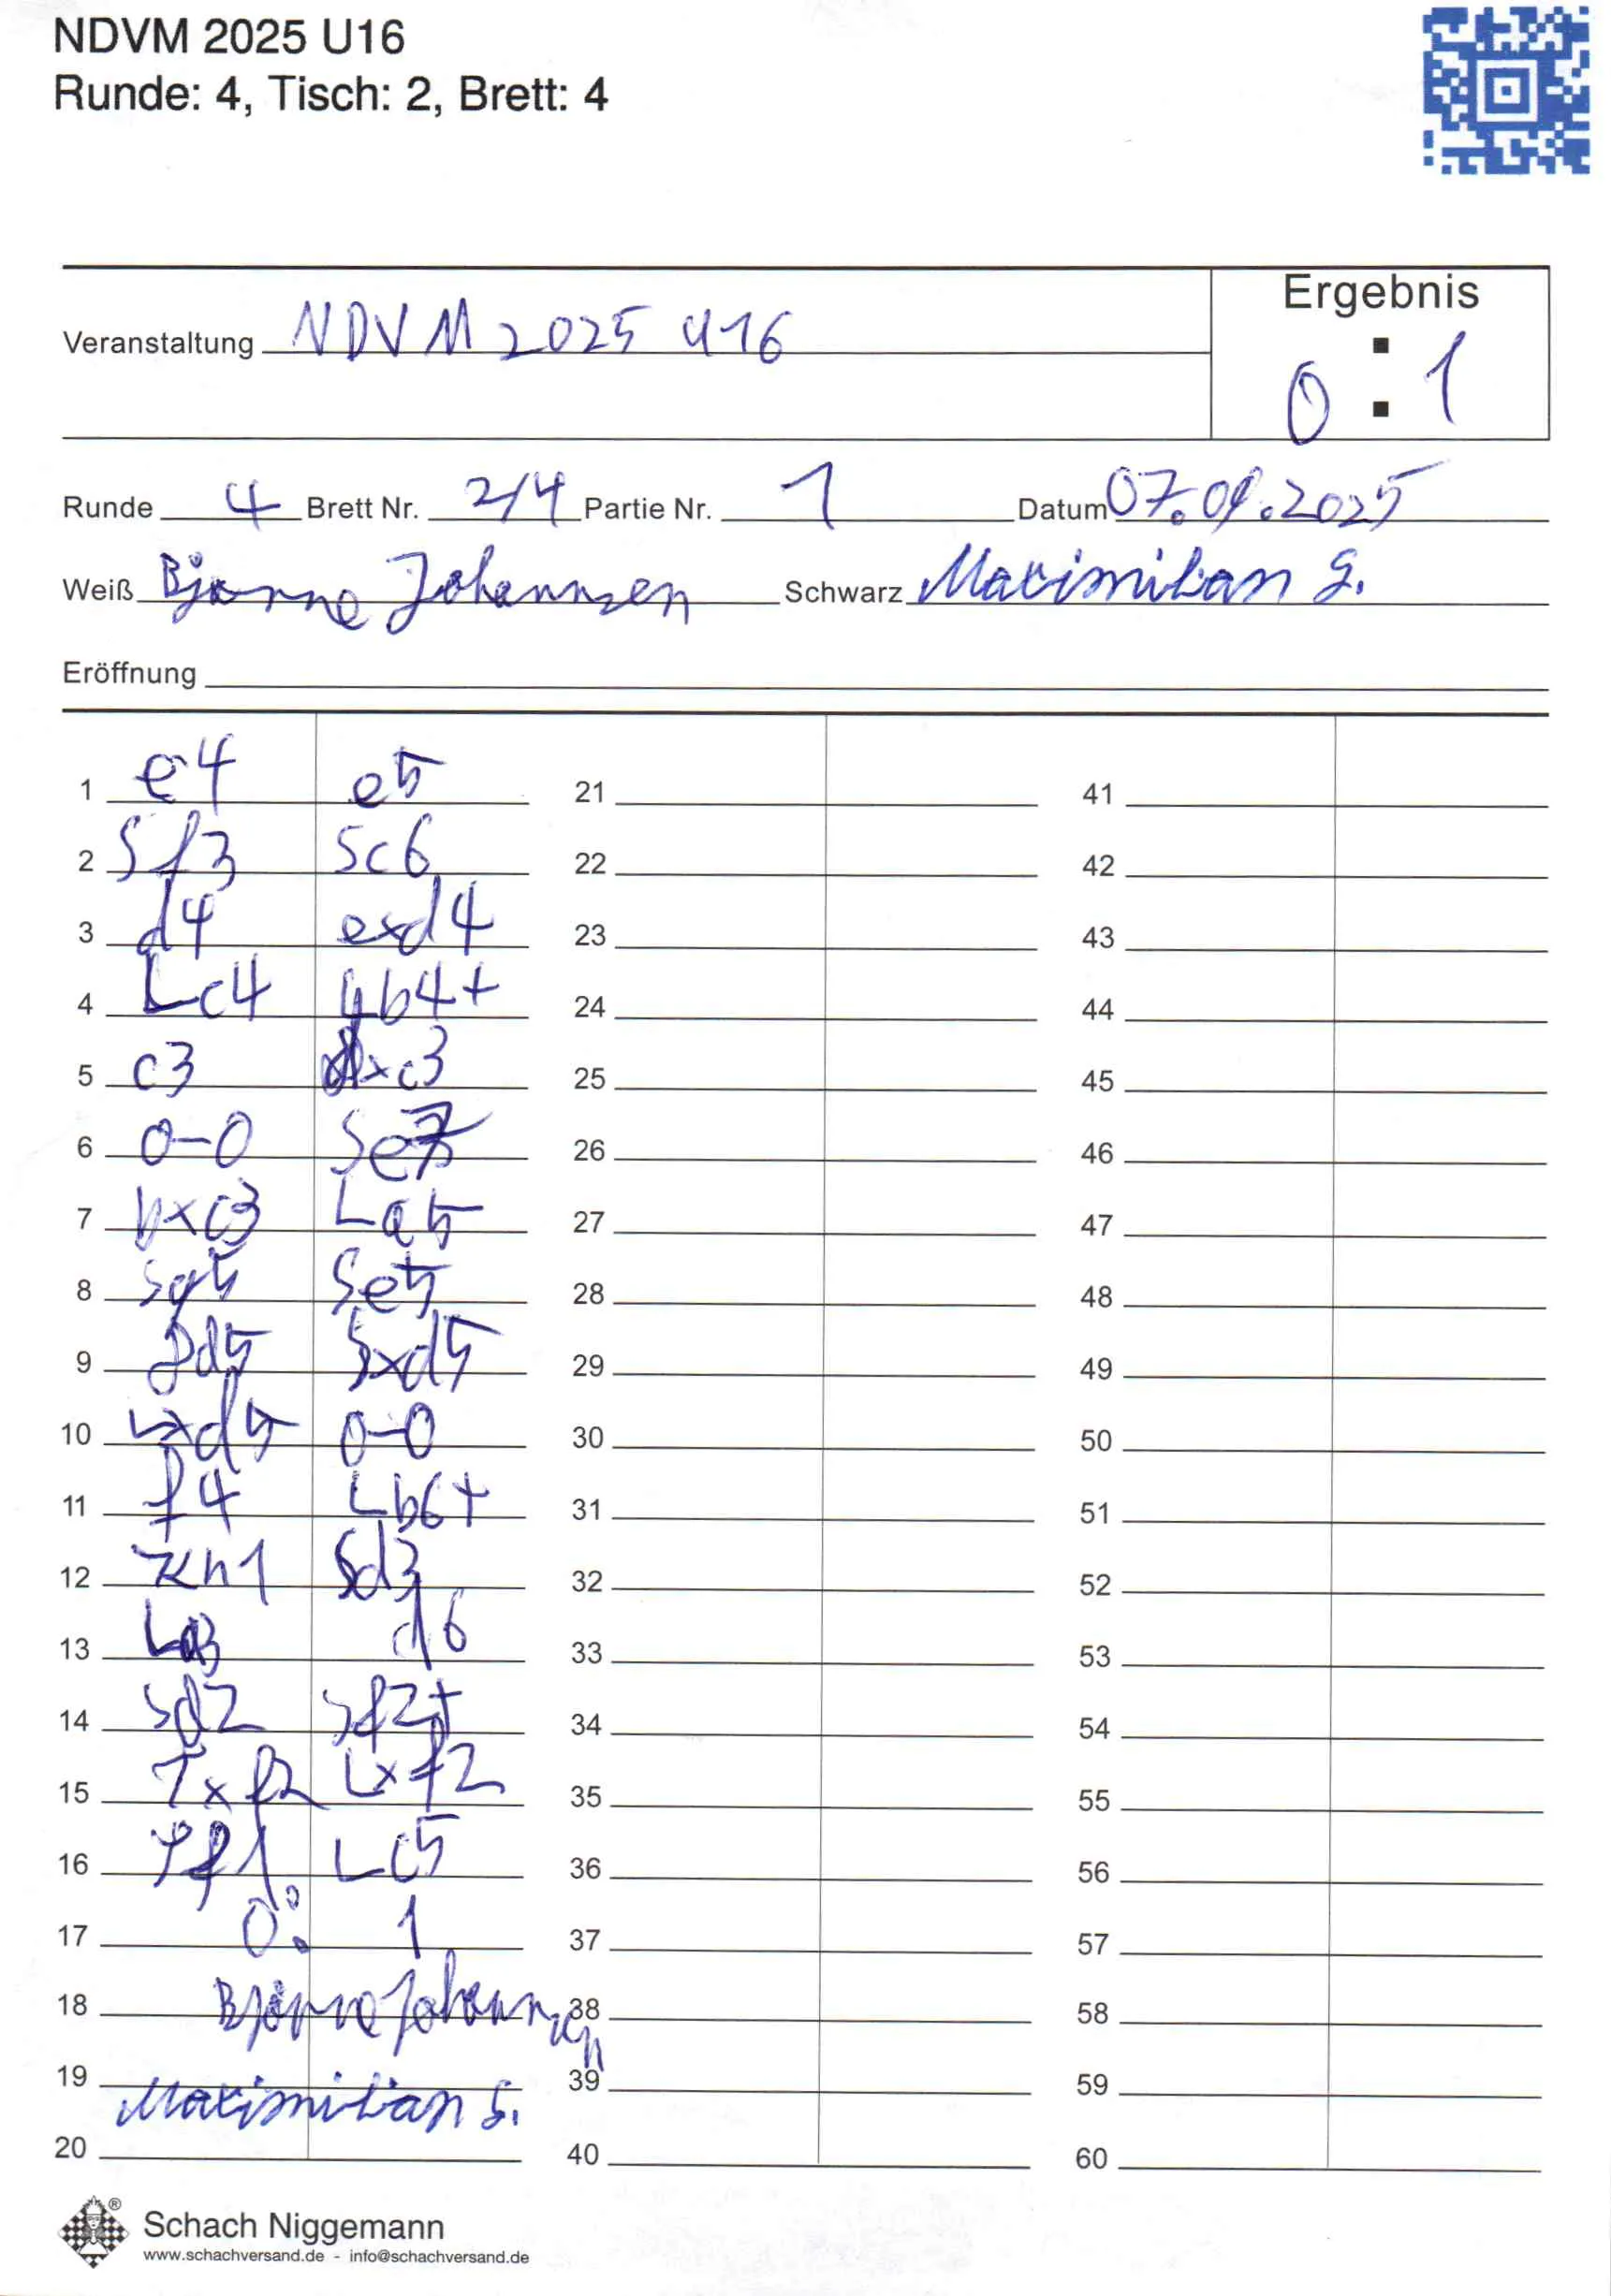 NDVM 2025 U16
Runde: 4, Tisch: 2, Brett: 4
Ergebnis
Veranstaltung NDVM 2025 U16
0 : 1
Runde 4 Brett Nr. 2/4 Partie Nr. 1 Datum 07.09.2025
Weiß Bjarne Johannsen Schwarz Maximilian S.
Eröffnung
1 e4 e5 21 41
2 Sf3 Sc6 22 42
3 d4 exd4 23 43
4 Lc4 Lb4+ 24 44
5 c3 dxc3 25 45
6 0-0 Se7 26 46
7 bxc3 La5 27 47
8 Sg5 Se5 28 48
9 Dd5 Sxd5 29 49
10 Lxd5 0-0 30 50
11 f4 Lb6+ 31 51
12 Kh1 Sd3 32 52
13 La3 d6 33 53
14 Sd2 Sf2+ 34 54
15 Txf2 Lxf2 35 55
16 Tf1 Lc5 36 56
17 0 : 1 37 57
18 Bjarne Johannsen 38 58
19 39 59
Maximilian S.
20 40 60
Schach Niggemann
www.schachversand.de - info@schachversand.de